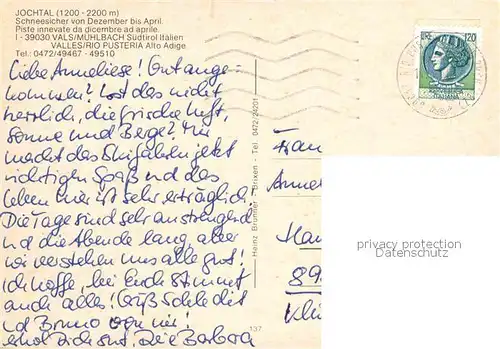 JOCHTAL (1200 - 2200 m)
Schneesicher von Dezember bis April.
Piste innevate da dicembre ad aprile.
I - 39030 VALS/MÜHLBACH Südtirol Italien
VALLES/RIO PUSTERIA Alto Adige
Tel.: 0472/49467 - 49510
Liebe Anneliese! Gut ange-
kommen? Ist das nicht
herrlich, die frische Luft,
Sonne und Berge? Mir
macht das Skifahren jetzt
richtigen Spaß und das
Leben hier ist sehr erträglich!
Die Tage sind sehr anstrengend
und die Abende lang, aber
wir verstehen uns alle gut!
Ich hoffe, bei Euch stimmt
auch alles! Grüß
und Bruno von mir!
Deine Barbara
Heinz Brunner - Brixen - Tel. 0472/24201
137
LIRE 120
Frau
Annel
Han
89
Kli
privacy protection
ansichtskarten-center.de